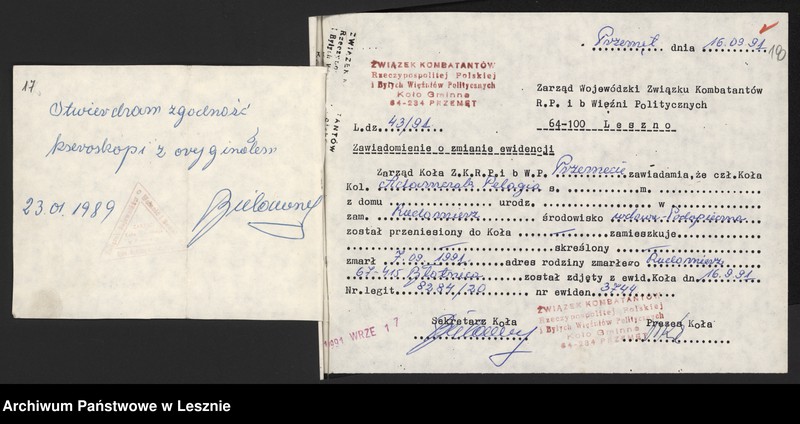 17
Stwierdzam zgodność
kseroskopi z oryginałem
23.01.1989
190
Przemęt dnia 16.09.91
ZWIĄZEK KOMBATANTÓW
Rzeczypospolitej Polskiej
i Byłych Więźniów Politycznych
Koło Gminne
64-234 PRZEMĘT
Zarząd Wojewódzki Związku Kombatantów
R.P. i b Więźni Politycznych
64-100 Leszno
L.dz. 43/91
Zawiadomienie o zmianie ewidencji
Zarząd Koła Z.K.R.P.i b W.P. Przemęcie zawiadamia, że czł.Koła
Kol. Adamczak Pelagia s. m.
z domu urodz. w
zam. Radomierz środowisko wdowa
został przeniesiony do Koła zamieszkuje
skreślony Radomierz
zmarł 7.09.1991. adres rodziny zmarłego
67-415 Błotnica został zdjęty z ewid.Koła dn 16.9.91
Nr.legit 8284/20 nr ewiden. 3744
ZWIĄZEK KOMBATANTÓW
Rzeczypospolitej Polskiej
i Byłych Więźniów Politycznych
Koło Gminne
64-234 PRZEMĘT
Sekretarz Koła Prezes Koła
1991 WRZE 17
Archiwum Państwowe w Lesznie